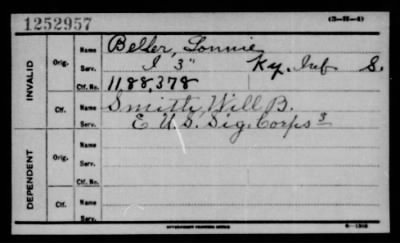 1252957
(3-H-4)
INVALID
Orig.
Name
Beller, Lonnie
Serv.
I 3" Ky. Inf S.
Ctf. No.
1188,378
Ctf.
Name
Smith, Will B.
Serv.
E U.S. Sig. Corps
DEPENDENT
Orig.
Name
Serv.
Ctf. No.
Ctf.
Name
Serv.